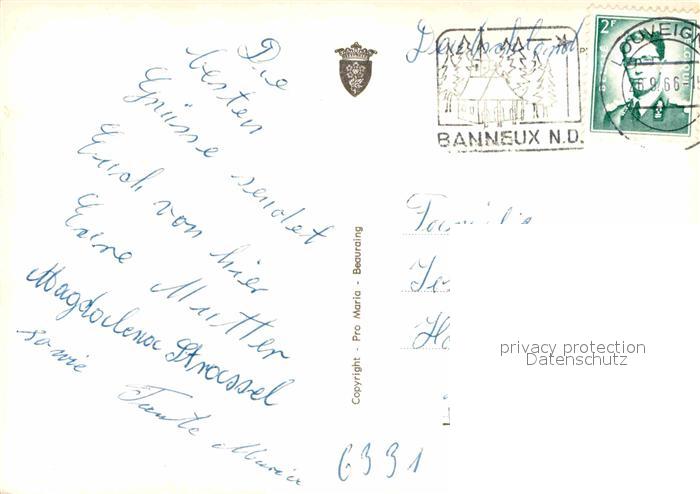 Die
besten
Grüsse sendet
Euch von hier
Eure Mutter
Magdalena Strassel
sowie Tante Maria
6331
Copyright - Pro Maria - Beauraing
Deutschland
BANNEUX N.D.
LOUVEIGN
6.9.66
2F
Familie
privacy protection
Datenschutz